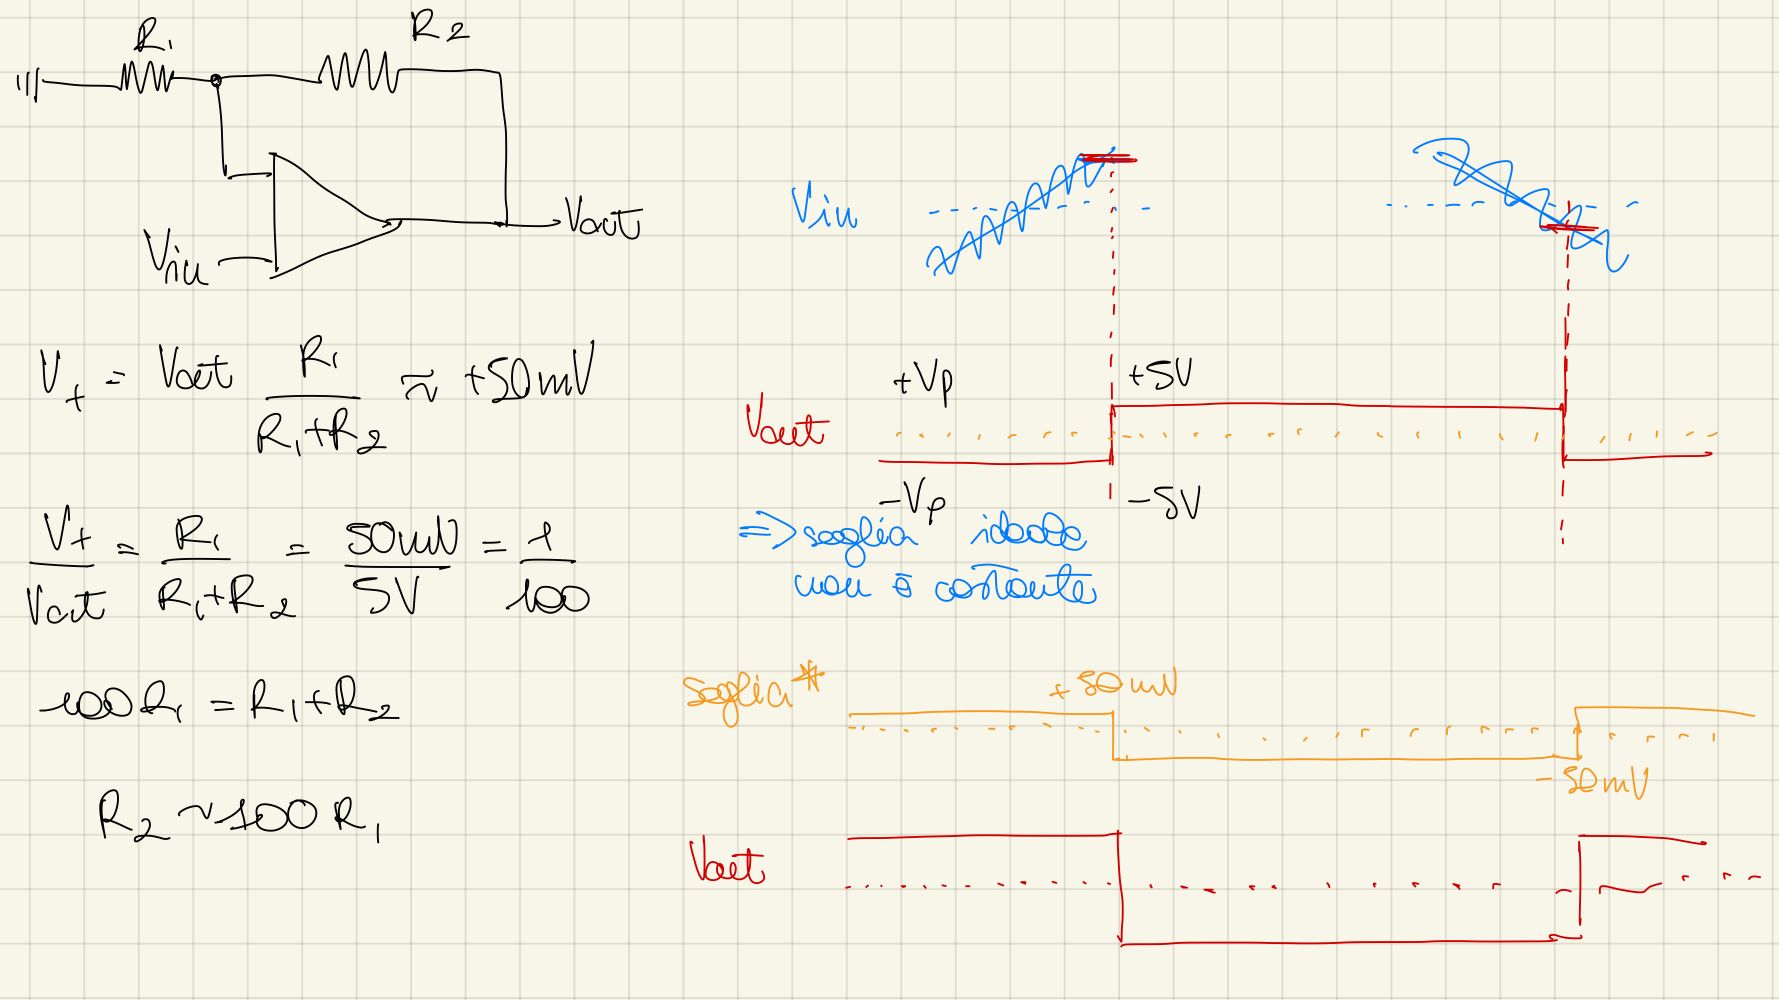 R₁
R₂
Vout
Vin
V₊ = Vout R₁ / (R₁+R₂) ≈ +50mV
V₊ / Vout = R₁ / (R₁+R₂) = 50mV / 5V = 1 / 100
100R₁ = R₁+R₂
R₂ ~ 100 R₁
Vin
+Vp
+5V
Vout
-Vp
-5V
=> soglia ideale
non è costante
Soglia*
+50mV
-50mV
Vout